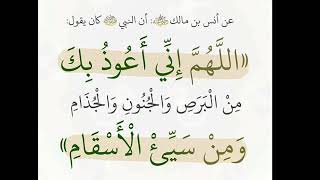 عن أنس بن مالك ﷺ: أن النبي ﷺ كان يقول:
«اللَّهُمَّ إِنِّي أَعُوذُ بِكَ
مِنَ الْبَرَصِ وَالْجُنُونِ وَالْجُذَامِ
وَمِنْ سَيِّئْ الْأَسْقَامِ»